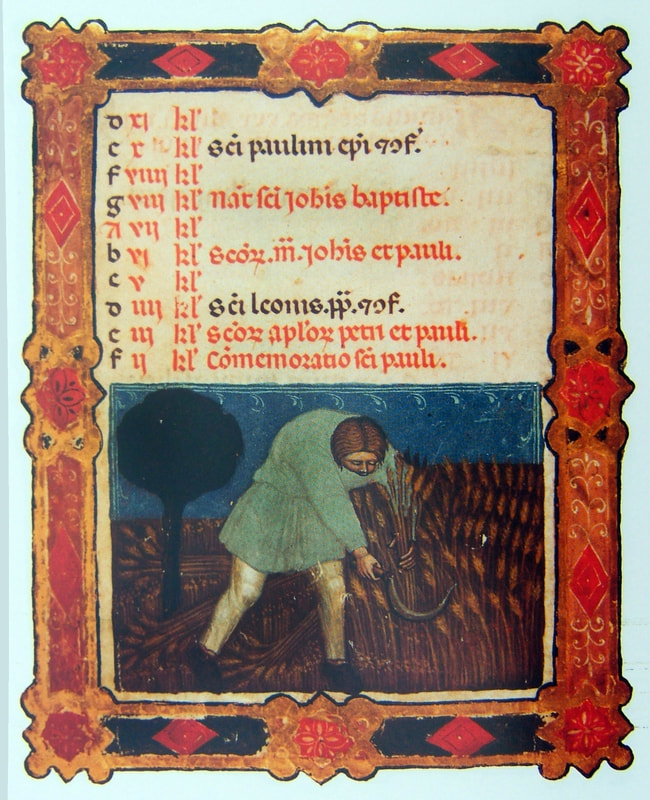 d xj kl'
e x kl' Sc̄i paulini ep̄i ꝯf.
f viiij kl'
g viij kl' Nat̄ sc̄i Joh̄is baptiste.
A vij kl'
b vj kl' Sc̄oꝝ. m̄. Joh̄is et pauli.
c v kl'
d iiij kl' Sc̄i leonis. pp̄. ꝯf.
e iij kl' Sc̄oꝝ ap̄loꝝ petri et pauli.
f ij kl' Cōmemoratio sc̄i pauli.